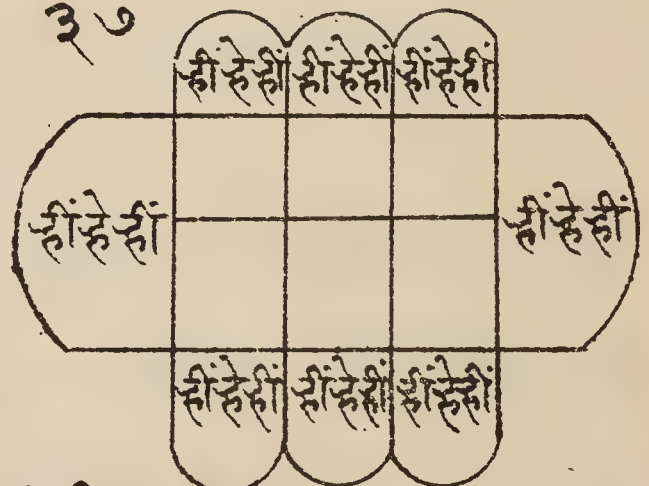 ३७
र्‍हीं र्‍हे र्‍हीं र्‍हीं र्‍हे र्‍हीं र्‍हीं र्‍हे र्‍हीं
र्‍हीं र्‍हे र्‍हीं र्‍हीं र्‍हे र्‍हीं
र्‍हीं र्‍हे र्‍हीं र्‍हीं र्‍हे र्‍हीं र्‍हीं र्‍हे र्‍हीं